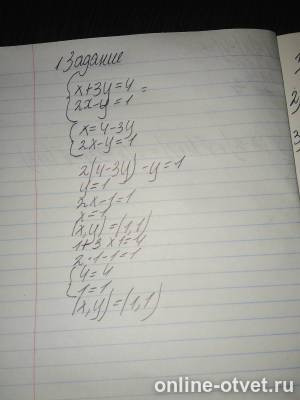 1 Задание
{x+3y=4
2x-y=1 =
{x=4-3y
2x-y=1
2(4-3y)-y=1
y=1
2x-1=1
x=1
(x,y)=(1,1)
1+3×1=4
2·1-1=1
{4=4
1=1
(x,y)=(1,1)
online-otvet.ru